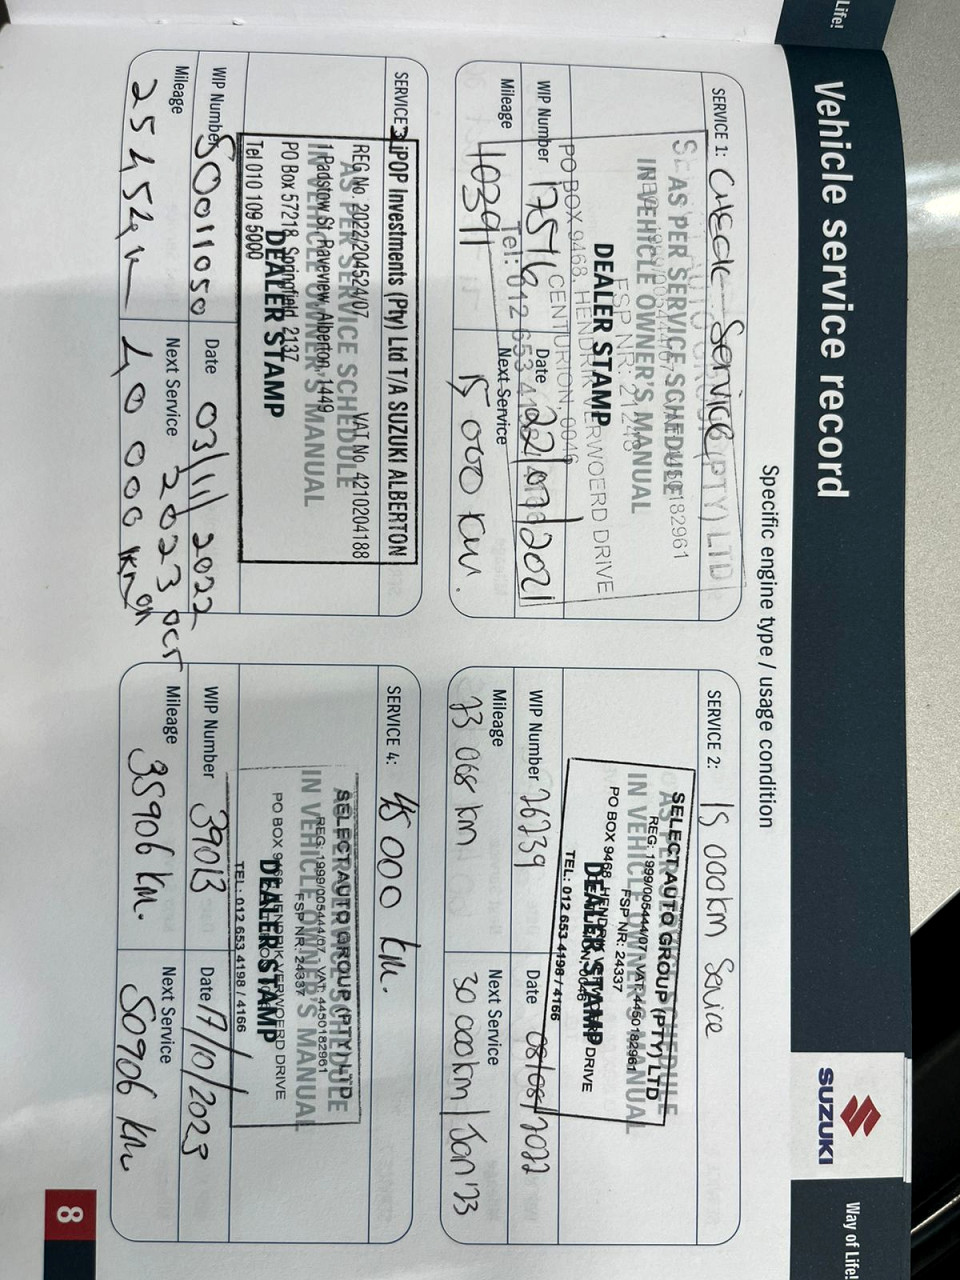 Life!
Vehicle service record
SUZUKI
Way of Life!
Specific engine type / usage condition
SERVICE 1: CHECK Service
(PTY) LTD
AS PER SERVICE SCHEDULE
IN VEHICLE OWNER'S MANUAL
FSP NR: 21243
DEALER STAMP
PO BOX 9468, HENDRIK VERWOERD DRIVE
CENTURION, 0046
Tel: 012 653 4198
WIP Number 17516
Date 22/07/2021
Mileage 10391
Next Service 15 000 km.
SERVICE 2: 15 000km Service
SELECT AUTO GROUP (PTY) LTD
REG: 1999/005444/07 VAT: 4450182961
AS PER SERVICE SCHEDULE
IN VEHICLE OWNER'S MANUAL
FSP NR: 24337
PO BOX 9468, HENDRIK VERWOERD DRIVE
DEALER STAMP
TEL: 012 653 4198 / 4166
WIP Number 26239
Date 08/08/2022
Mileage 13 068 km
Next Service 30 000km / Jan '23
SERVICE 3:
iPOP Investments (Pty) Ltd T/A SUZUKI ALBERTON
REG No. 2022/204524/07 VAT No 4210204188
AS PER SERVICE SCHEDULE
1 Padstow St, Raveview, Alberton, 1449
IN VEHICLE OWNER'S MANUAL
PO Box 57218, Springfield, 2137
DEALER STAMP
Tel 010 109 5000
WIP Number 50011050
Date 03/11/2022
Mileage 25452km
Next Service 2023 OCT
40 000 km
SERVICE 4: 45 000 km.
SELECT AUTO GROUP (PTY) LTD
AS PER SERVICE SCHEDULE
REG: 1999/005444/07 VAT: 4450182961
IN VEHICLE OWNER'S MANUAL
FSP NR: 24337
PO BOX 9468, HENDRIK VERWOERD DRIVE
DEALER STAMP
TEL: 012 653 4198 / 4166
WIP Number 39013
Date 17/10/2023
Mileage 35906 km.
Next Service 50906 km
8